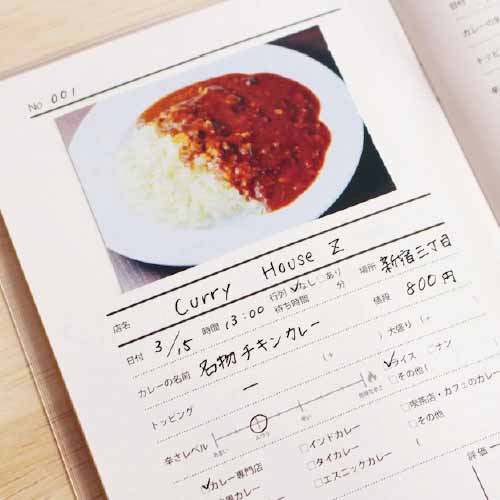 No 001
店名 Curry House Z
日付 3/15 時間 13:00 行列 ✓なし □あり 場所 新宿三丁目
待ち時間 分
カレーの名前 名物チキンカレー 値段 800円
トッピング ー (+ ) 大盛り (+
✓ライス □ナン
□その他(
辛さレベル あまい ふつう 辛い
✓カレー専門店 □インドカレー □喫茶店・カフェのカレー
□タイカレー □その他
□エスニックカレー
評価
日付
カレーの名